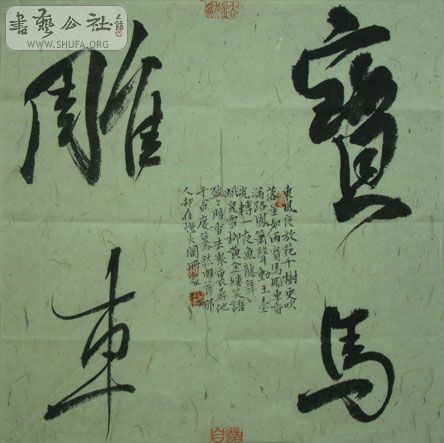 書藝公社
WWW.SHUFA.ORG
寶馬
雕車
東風夜放花千樹更吹
落星如雨寶馬雕車香
滿路鳳簫聲動玉壺
光轉一夜魚龍舞
蛾兒雪柳黃金縷笑語
盈々暗香去衆裏尋他
千百度驀然回首那
人却在燈火闌珊處